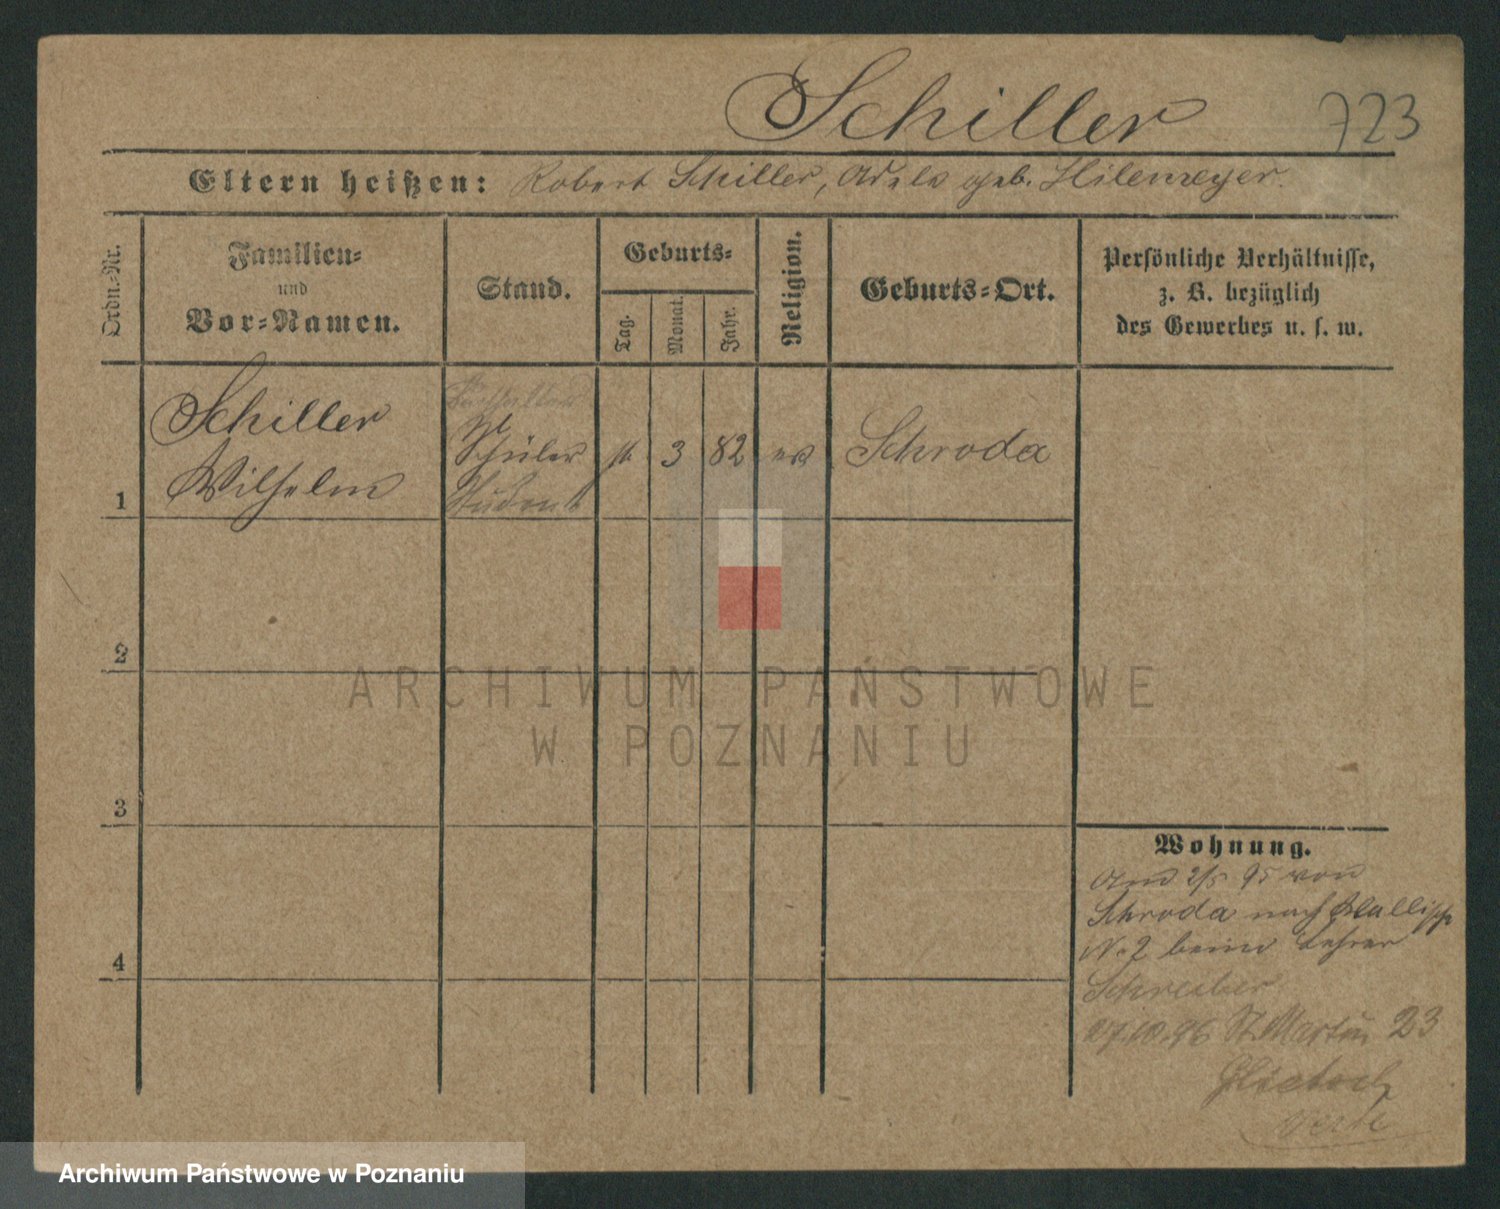 Schiller 723
Eltern heißen: Robert Schiller, Adele geb. Hilemeyer.
Ordn.-Nr.
Familien-
und
Vor-Namen.
Stand.
Geburts-
Tag.
Monat.
Jahr.
Religion.
Geburts-Ort.
Persönliche Verhältnisse,
z. B. bezüglich
des Gewerbes u. s. w.
1
Schiller
Wilhelm
Schüler
Student
3 82 ev
Schroda
2
ARCHIWUM PAŃSTWOWE
W POZNANIU
3
Wohnung.
Am 2/5 95 von
Schroda nach
No 2 beim Lehrer
Schreiber
27.10.96 St. Martin 23
4
Archiwum Państwowe w Poznaniu